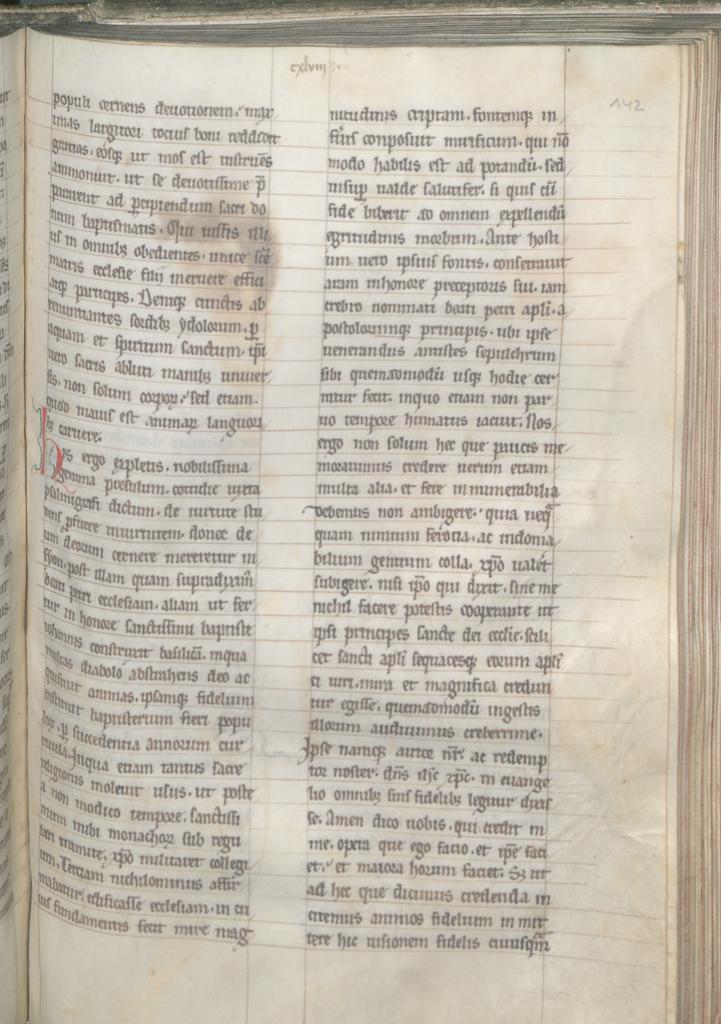 cxlviii.
142
populi cernens deuotionem. max
imas largitori tocius boni reddidit
gratias. eosq; ut mos est instruēs
ammonuit. ut se deuotissime p̄
pararent ad percipiendum sacri do
num baptismatis. Qui iussis illi
us in omnibus obedientes. unice scē
matris ecclesie filij meruere effici
atq; participes. Deniq; cunctis ab
renuntiantes sordib; ydolorum. p̱
aquam et spiritum sanctum. ip̄i
uero sacris abluti manib; uniuer
sis. non solum corpor̄. sed etiam.
quod maius est animar̄ languori
b; caruere.
His ergo expletis. nobilissima
gemma presulum. cotidie iuxta
psalmigrafi dictum. de uirtute stu
dens p̄ficere in uirtutem. donec de
um deorum cernere mereretur in
syon. post illam quam supradiximꝰ
beati petri ecclesiam. aliam ut fer
tur in honore sanctissimi baptiste
iohannis construxit basilicā. in qua
multas diabolo abstrahens deo ac
quisiuit animas. ipsamq; fidelium
instituit baptisterium fieri popu
lor̄. p̱ succedentia annorum cur
ricula. In qua etiam tantus sacre
religionis moleuit usus. ut poste
a non modico tempore. sanctissi
mum inibi monachor̄ sub regu
lari tramite. xp̄o militaret collegi
um. Terciam nichilominus affir
mabatur. edificasse ecclesiam. in cu
ius fundamentis fecit mire mag
nitudinis criptam. fontemq; in
 conposuit mirificum. qui nō
modo habilis est ad potandū. sed
insup̱ ualde salutifer. si quis cū
fide biberit ad omnem expellendū
egritudinis morbum. Ante hosti
um uero ipsius fontis. consecrauit
aram in honore preceptoris sui. iam
crebro nominati beati petri apl̄i. a
postolorumq; principis. ubi ipse
uenerandus antistes sepulchrum
sibi quemadmodū usq; hodie cer
nitur fecit. in quo etiam non par
uo tempore humatus iacuit. Nos
ergo non solum hec que paucis me
morauimus credere uerum etiam
multa alia. et fere innumerabilia
debemus non ambigere. quia neq̄
quam nimium ferocia. ac indoma
bilium gentium colla. xp̄o ualēt
subigere. nisi ip̄o qui dixit. sine me
nichil facere potestis cooperante ut
ipsi principes sancte dei ecclīe. scili
cet sancti apl̄i sequacesq; eorum apl̄i
ci uiri. mira et magnifica credun
tur egisse. quemadmodū in gestis
illorum audiuimus creberrime.
Ipse namq; auctor nr̄. ac redemp
tor noster. dn̄s ih̄c xp̄c. in euange
lio omnib; suis fidelib; legitur dixis
se. Amen dico uobis. qui credit in
me. opera que ego facio. et ip̄e faci
et. et maiora horum faciet. Sꝫ ut
ad hec que dicimus credenda in
citemus animos fidelium in mit
tere hic uisionem fidelis cuiusq̄m